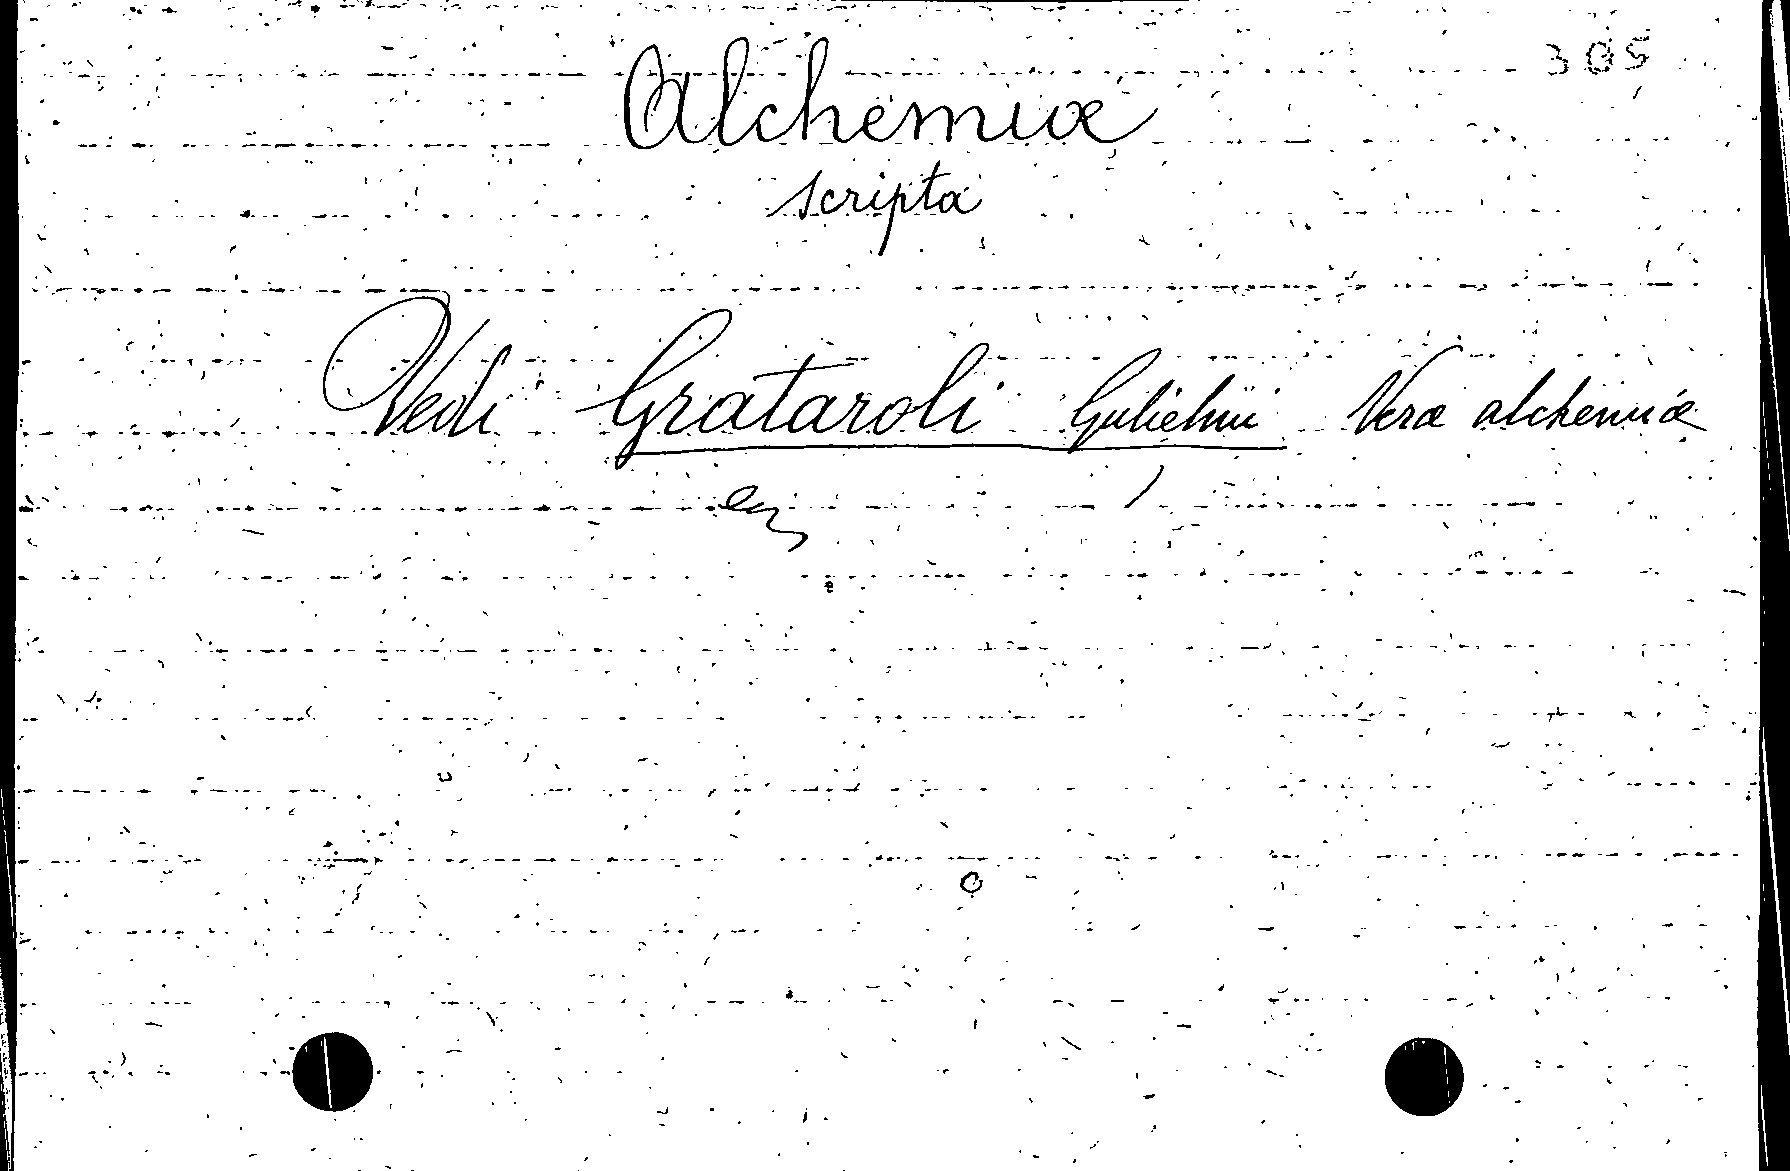 305
Alchemiæ
scripta
Vedi Grataroli Gulielmi Veræ alchemiæ